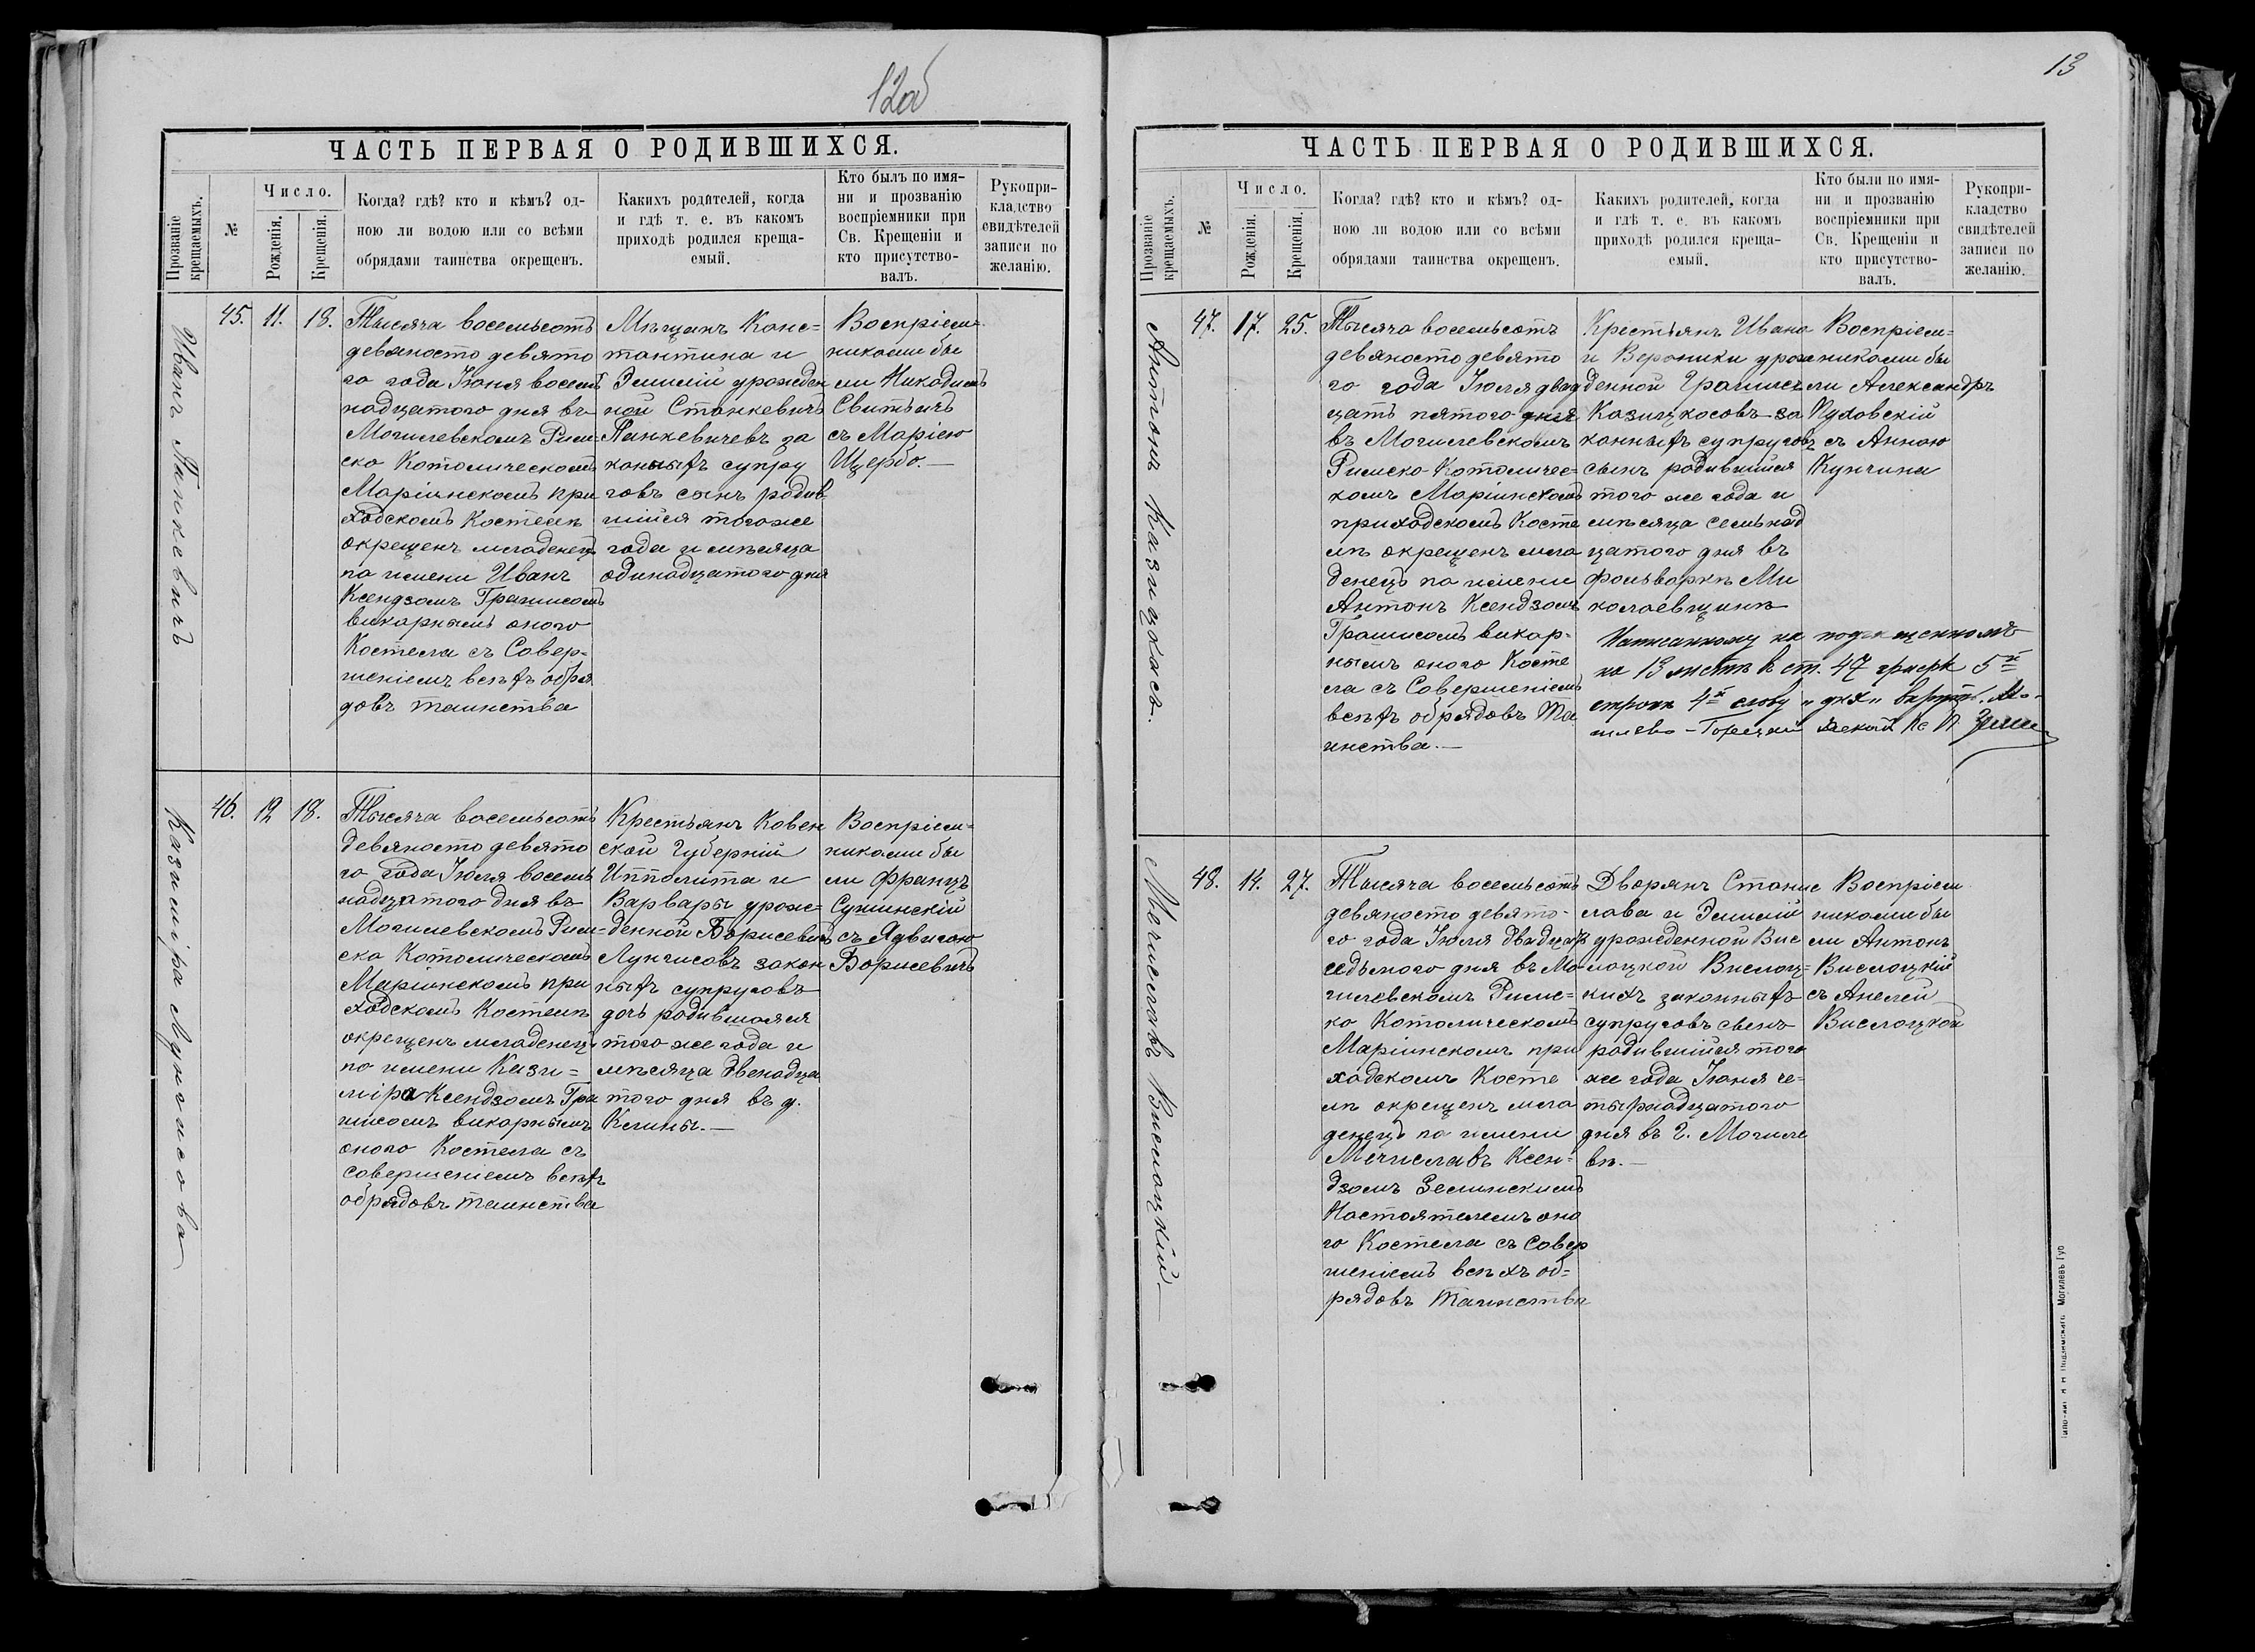 12об
ЧАСТЬ ПЕРВАЯ О РОДИВШИХСЯ.
Прозваніе крещаемыхъ.
№
Число.
Рожденія.
Крещенія.
Когда? гдѣ? кто и кѣмъ? од-
ною ли водою или со всѣми
обрядами таинства окрещенъ.
Какихъ родителей, когда
и гдѣ т. е. въ какомъ
приходѣ родился креща-
емый.
Кто былъ по имя-
ни и прозванію
воспріемники при
Св. Крещеніи и
кто присутство-
валъ.
Рукопри-
кладство
свидѣтелей
записи по
желанію.
Иванъ Панкевичъ
45.
11.
18.
Тысяча восемьсотъ
девяносто девято
го года Іюня восем
надцатого дня въ
Могилевскомъ Рим-
ско Католическомъ
Маріинскомъ при
ходскомъ Костелѣ
окрещенъ младенецъ
по имени Иванъ
Ксендзомъ Грашисомъ
викарнымъ оного
Костела съ Совер=
шеніемъ всѣхъ обря
довъ таинства
Мѣщанъ Конс=
тантина и
Эмиліи урожден
ной Станкевичъ
Панкевичевъ за
конныхъ супру
говъ сынъ родив
шійся того же
года и мѣсяца
одинадцатого дня
Воспріем-
никами бы
ли Никодимъ
Свитычъ
съ Маріею
Щербо.—
Казиміра Лунгисова
46.
12
18.
Тысяча восемьсотъ
девяносто девято
го года Іюля восемь
надцатого дня въ
Могилевскомъ Рим=
ско Католическомъ
Маріинскомъ при
ходскомъ Костелѣ
окрещенъ младенецъ
по имени Кази=
міра Ксендзомъ Гра
шисомъ викарнымъ
оного Костела съ
совершеніемъ всѣхъ
обрядовъ таинства
Крестьянъ Ковен
ской Губерніи
Ипполита и
Варвары урож=
денной Борисевичъ
Лунгисовъ закон
ныхъ супруговъ
дочь родившаяся
того же года и
мѣсяца двенадца
того дня въ д.
Клины.—
Воспріем=
никами бы
ли Францъ
Сушинскій
съ Ядвигою
Борисевичъ
13
ЧАСТЬ ПЕРВАЯ О РОДИВШИХСЯ.
Прозваніе крещаемыхъ.
№
Число.
Рожденія.
Крещенія.
Когда? гдѣ? кто и кѣмъ? од-
ною ли водою или со всѣми
обрядами таинства окрещенъ.
Какихъ родителей, когда
и гдѣ т. е. въ какомъ
приходѣ родился креща-
емый.
Кто были по имя-
ни и прозванію
воспріемники при
Св. Крещеніи и
кто присутство-
валъ.
Рукопри-
кладство
свидѣтелей
записи по
желанію.
Антонъ Казицкасъ.
47.
17.
25.
Тысяча восемьсотъ
девяносто девято
го года Іюля двад
цать пятого дня
въ Могилевскомъ
Римско-Католичес=
комъ Маріинскомъ
приходскомъ Косте
лѣ окрещенъ мла
денецъ по имени
Антонъ Ксендзомъ
Грашисомъ викар=
нымъ оного Косте
ла съ Совершеніемъ
всѣхъ обрядовъ Та
инства.—
Крестьянъ Ивана
и Вероники урож
денной Грашись
Казицкосовъ за
конныхъ супруговъ
сынъ родившійся
того же года и
мѣсяца семьнад
цатого дня въ
фольваркѣ Ми
колаевщинѣ
Воспріем=
никами бы
ли Александръ
Пуховскій
съ Анною
Кунчина
на 13 листѣ въ ст. 47 графѣ 5й
строкѣ 4й слову „дня“
Мечиславъ Вислоцкій—
48.
14.
27.
Тысяча восемьсотъ
девяносто девято-
го года Іюля двадцать
седьмого дня въ Мо
гилевскомъ Римс=
ко Католическомъ
Маріинскомъ при
ходскомъ Косте
лѣ окрещенъ мла
денецъ по имени
Мечиславъ Ксен=
дзомъ Зелинскимъ
Настоятелемъ оно
го Костела съ Совер
шеніемъ всѣхъ об=
рядовъ Таинства
Дворянъ Станис
лава и Эмиліи
урожденной Вис
лоцкой Вислоц=
кихъ законныхъ
супруговъ сынъ
родившійся того
же года Іюня че=
тырнадцатого
дня въ г. Могиле
вѣ.—
Воспріем
никами бы
ли Антонъ
Вислоцкій
съ Анелей
Вислоцкой
Могилевъ Губ